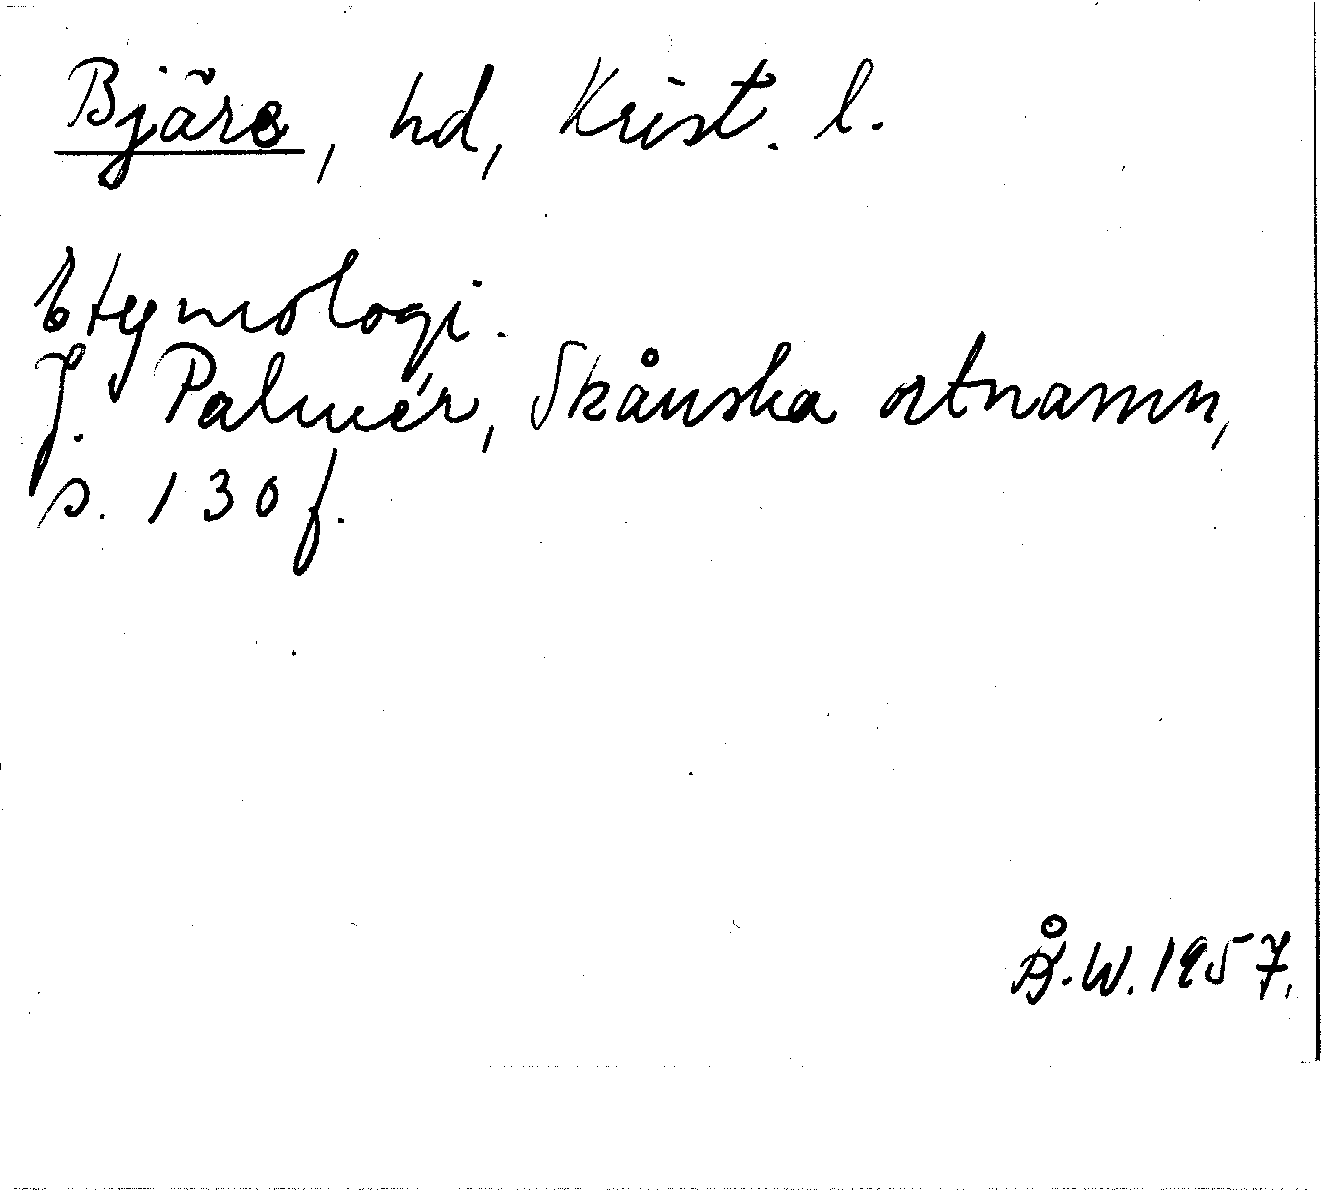 Bjäre, hd, Krist. l.
Etymologi.
J. Palmér, Skånska ortnamn,
s. 130 f.
Å.W. 1957.